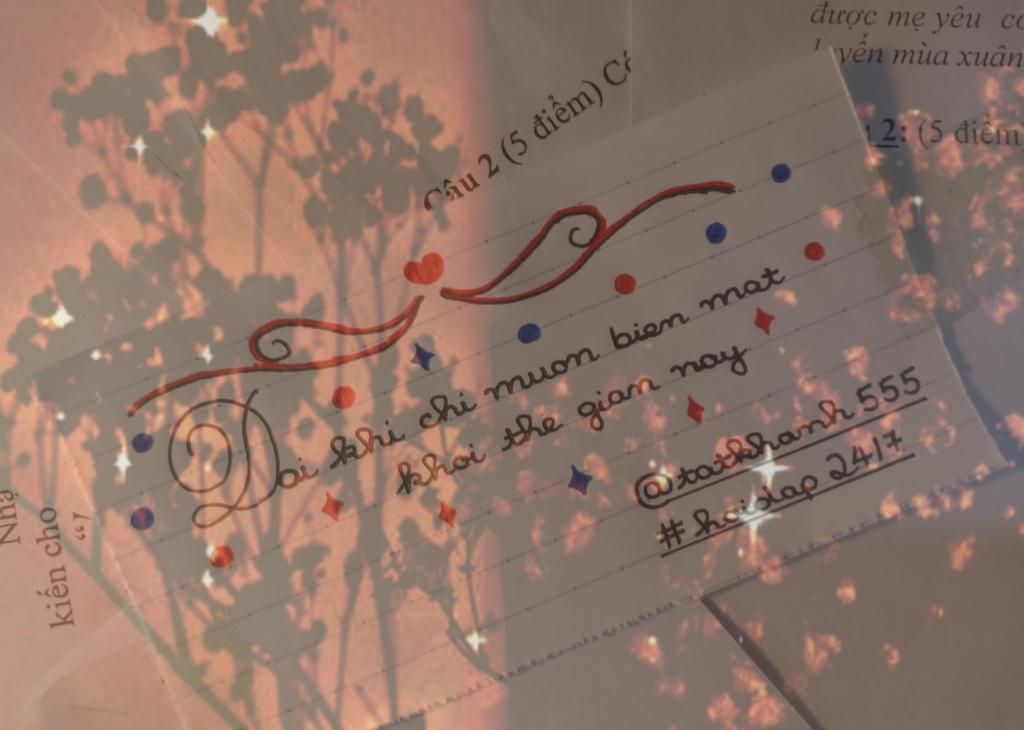 được mẹ yêu
luyến mùa xuân
Câu 2 (5 điểm)
2: (5 điểm
Đai khi chi muon bien mat
khoi the gian nay
@tatkhanh555
#hoidap247
kiến cho